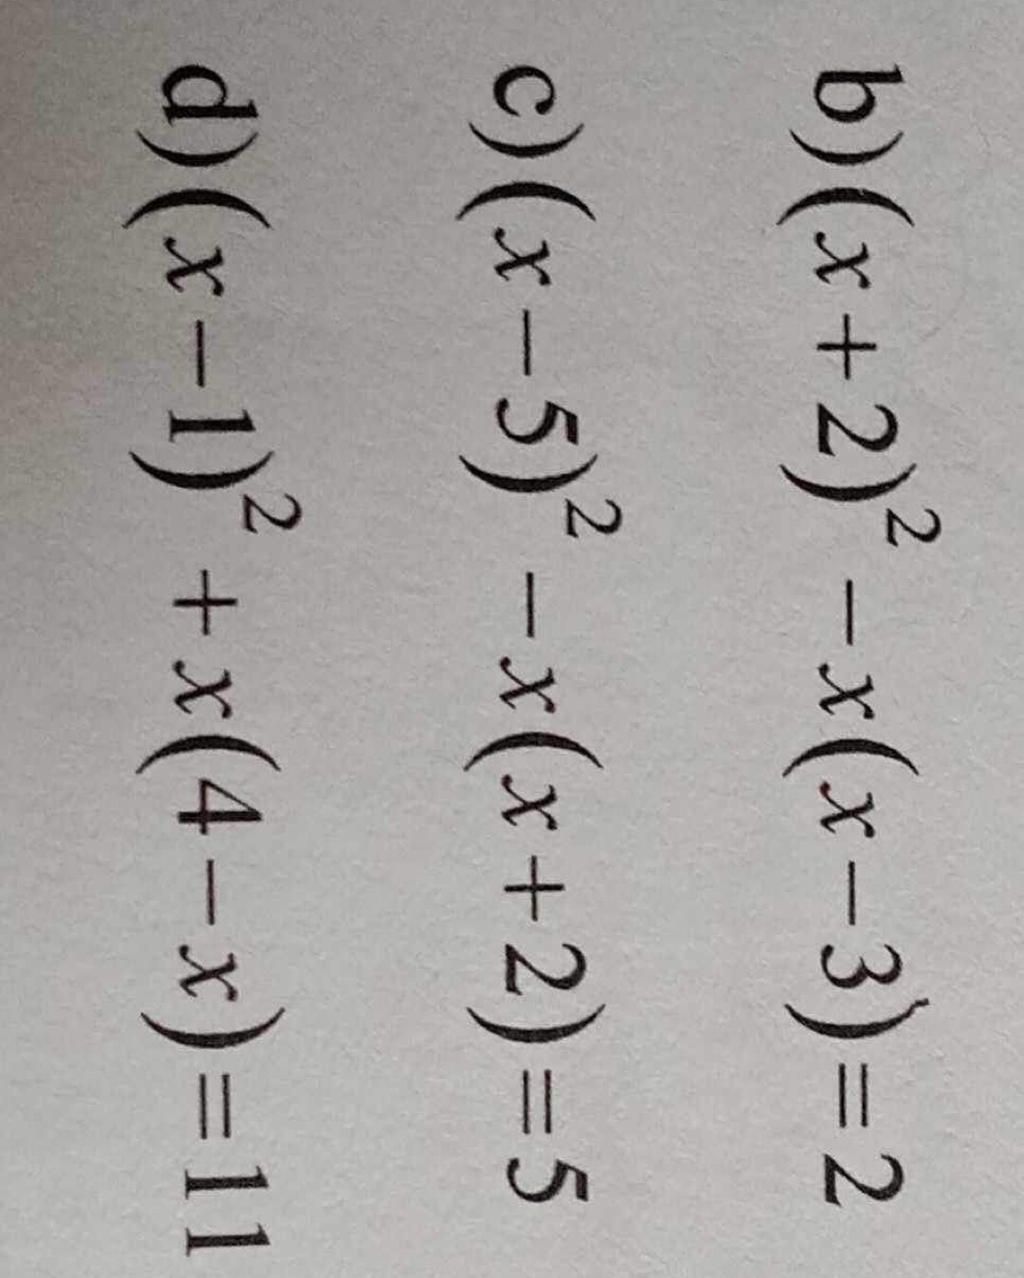 b) (x + 2)² − x(x − 3) = 2
c) (x − 5)² − x(x + 2) = 5
d) (x − 1)² + x(4 − x) = 11